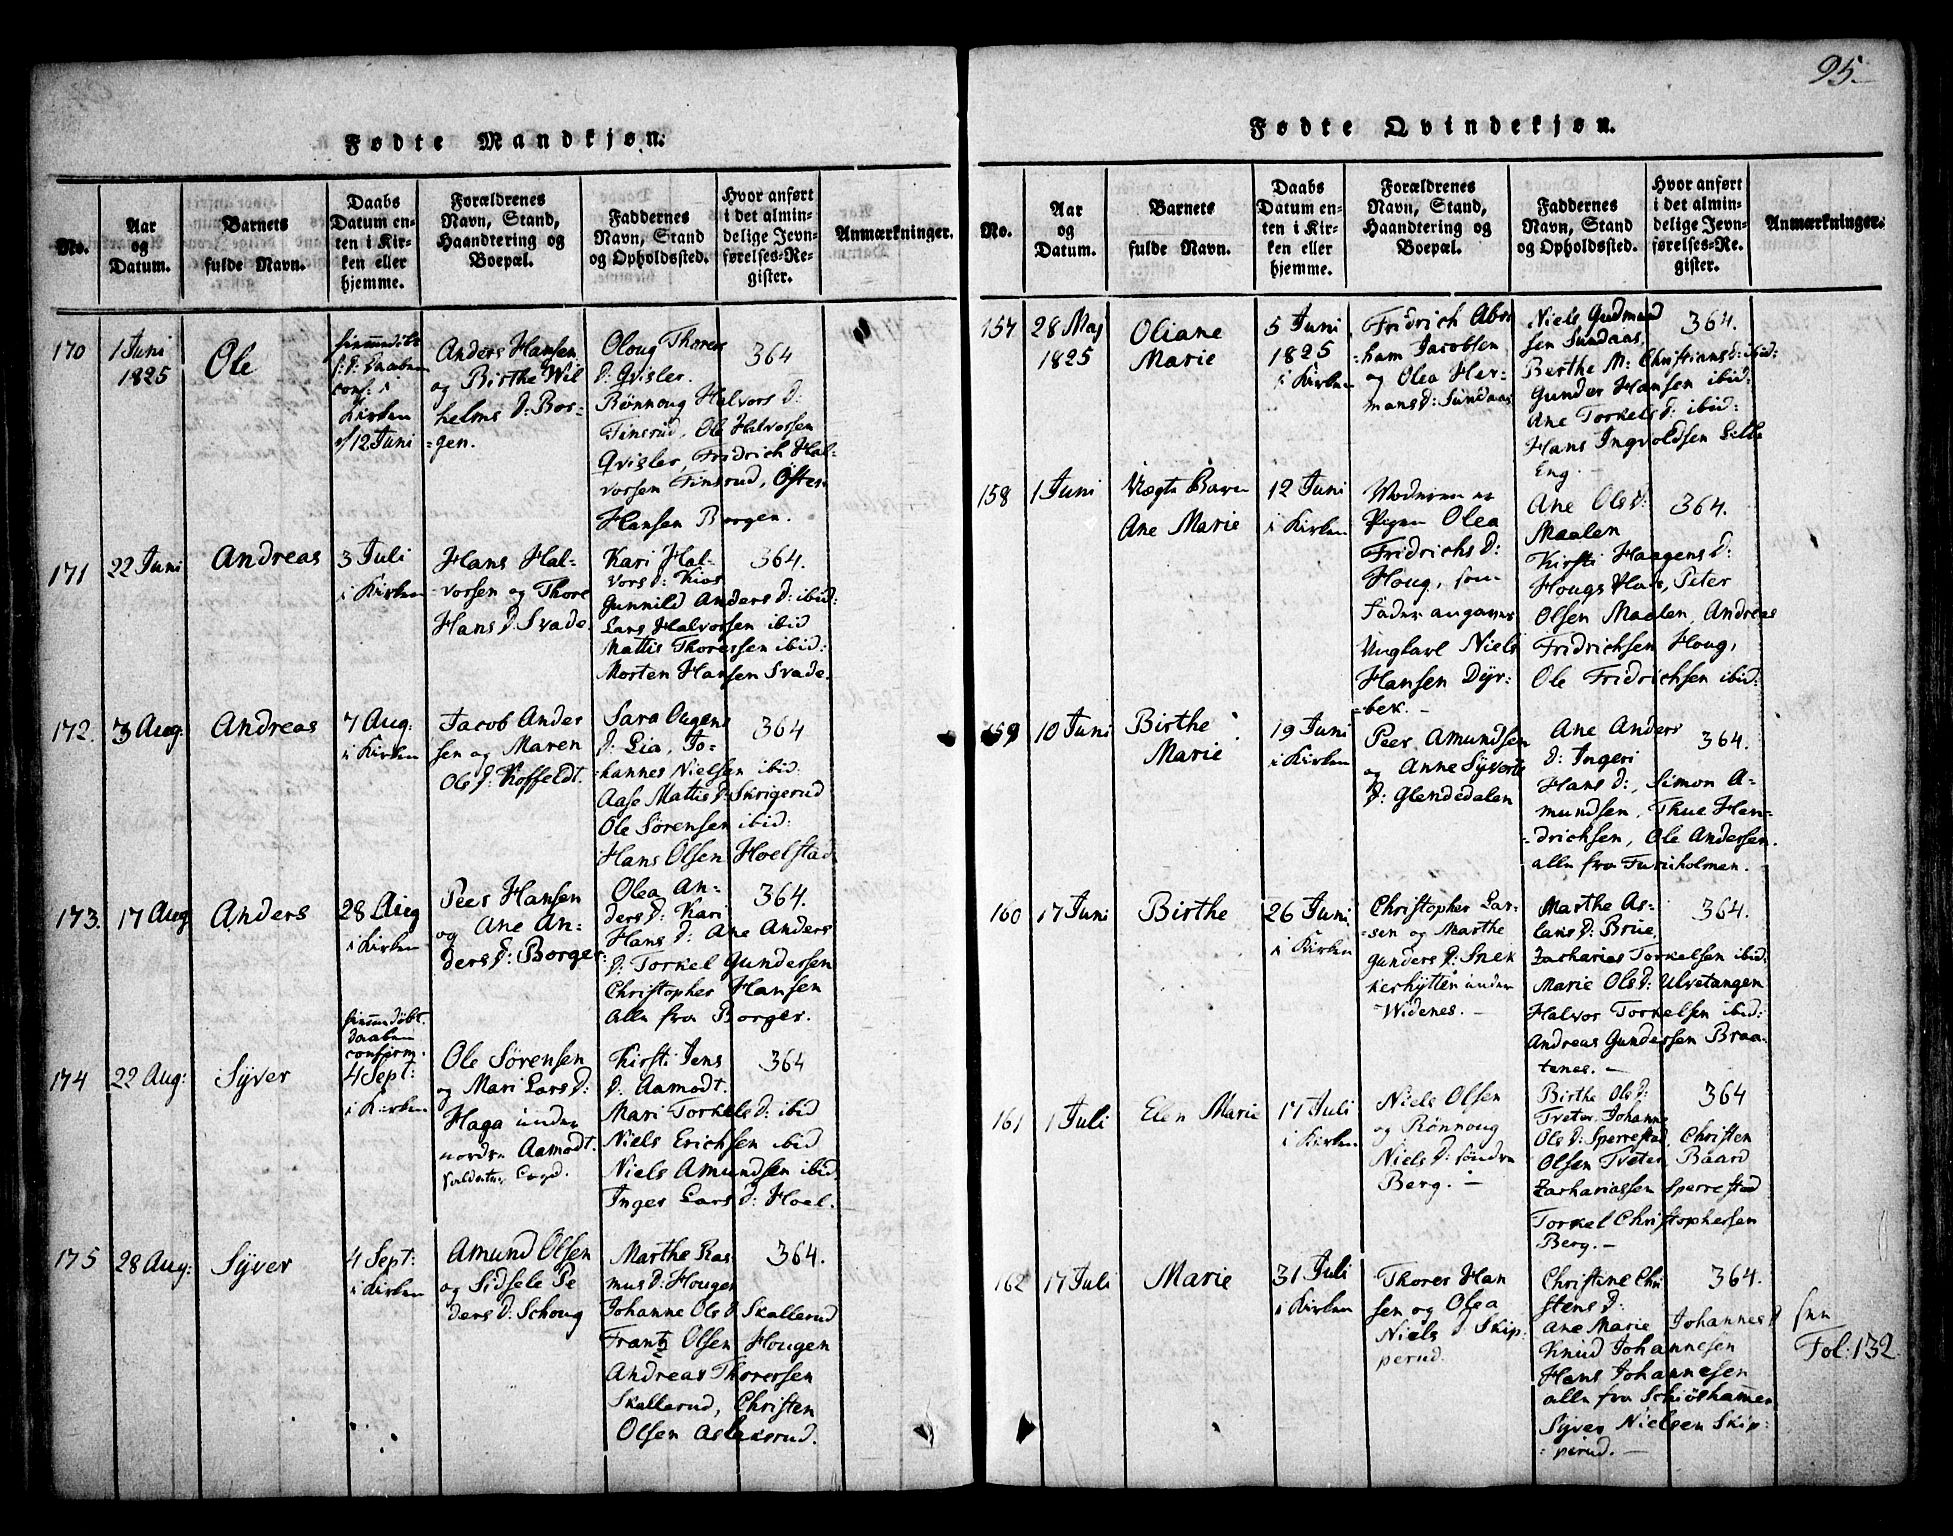 95.
Fødte Mandkjøn.
No.
Aar
og
Datum.
Barnets
fulde Navn.
Daabs
Datum en-
ten i Kir-
ken eller
hjemme.
Forældrenes
Navn, Stand,
Haandtering og
Boepæl.
Faddernes
Navn, Stand
og Opholdssted.
Hvor anført
i det almin-
delige Jevn-
førelses-Re-
gister.
Anmærkninger.
170
1 Juni
1825
Ole
conf: i
Kirken
12 Juni
Anders Hansen
og Birthe Wil
helms D: Bor-
=gen.
Oloug Thores
D: Gvisler.
Rønnoug Halvors D:
Finsrud, Ole Halvorsen
Gvisler, Fridrich Hal-
vorsen Finsrud, Østen
Hansen Borgen.
364
171
22 Juni
Andreas
3 Juli
i Kirken
Hans Hal-
vorsen og Thore
Hans D: Svade.
Kari Hal-
vors D: Kios
Gunnild Anders D: ibid:
Lars Halvorsen ibid
Mattis Thoresen ibid:
Morten Hansen Svade.
364.
172.
3 Aug:
Andreas
7 Aug:
i Kirken
Jacob Ander
sen og Maren
Ols D: Koffeldt.
Sara Ougens
D: Lia, Jo-
hannes Nielsen ibid:
Aase Mattis D: Skrigerud
Ole Sørensen ibid:
Hans Olsen Hoelstad
364
173.
17 Aug
Anders
28 Aug
i Kirken
Peer Hansen
og Ane An-
ders D: Borger:
Olea An-
ders D: Kari
Hans D: Ane Anders
D: Torkel Gundersen
Christopher Hansen
alle fra Borger.
364.
174
22 Aug:
Syver
hiemmedøbt.
daaben
confirm.
4 Sept:
i Kirken
Ole Sørensen
og Mari Lars D:
Haga under
nordre Aamodt.
Kirsti Jens
D: Aamodt.
Mari Torkels D: ibid
Niels Erichsen ibid
Niels Amundsen ibid
Inger Lars D: Hoel.
364
175
28 Aug:
Syver
4 Sept:
i Kirken
Amund Olsen
og Sidsele Pe
ders D: Schoug
Marthe Ras
mus D: Hougen
Johanne Ols D: Skallerud
Frantz Olsen Hougen
Andreas Thoresen
Skallerud, Christen
Olsen Aslaksrud.
364.
Fødte Qvindekjøn.
No.
Aar
og
Datum.
Barnets
fulde Navn.
Daabs
Datum en-
ten i Kir-
ken eller
hjemme.
Forældrenes
Navn, Stand,
Haandtering og
Boepæl.
Faddernes
Navn, Stand
og Opholdssted.
Hvor anført
i det almin-
delige Jevn-
førelses-Re-
gister.
Anmærkninger.
157
28 Maj
1825
Oliane
Marie
5 Juni
1825
i Kirken
Fridrich Abra
ham Jacobsen
og Olea Her-
mans D: Sundaas
Niels Gudmund
sen Sundaas,
Berthe M: Christians D: ibid:
Gunder Hansen ibid:
Ane Torkels D: ibid:
Hans Ingvoldsen Lille
Eng.
364.
158
1 Juni
Uægte Barn
Ane Marie
12 Juni
i Kirken
Moderen er
Pigen Olea
Fridrichs D:
Houg, som
Fader angaves
Ungkarl Niels
Hansen Dyr-
=bek.
Ane Ols D:
Maalen
Kirsti Haagens D:
Hougs Hals, Peter
Olsen Maalen, Andreas
Fridrichsen Houg,
Ole Fridrichsen ibid:
364.
159
10 Juni
Birthe
Marie
19 Juni
i Kirken
Peer Amundsen
og Anne Syverts
D: Glendedalen
Ane Anders
D: Ingeri
Hans D:, Simon A-
mundsen, Thue Hen-
=drichsen, Ole Andersen.
alle fra Furuholmen.
364.
160
17 Juni
Birthe
26 Juni
i Kirken
Christopher Lar-
=sen og Marthe
Gunders D: Snek
kerhytten under
Widenes.
Marthe As-
laks D: Brue,
Zacharias Torkelsen ibid:
Marie Ols D: Ulvetangen
Halvor Torkelsen ibid:
Andreas Gundersen Braa-
tenes.
364.
161
1 Juli
Elen Marie
17 Juli
i Kirken
Niels Olsen
og Rønnoug
Niels D: søndre
Berg.
Birthe Ols D:
Tveter, Johanne
Ols D: Sperrestad, Christen
Olsen Tveter, Baard
Zachariassen Sperrestad
Torkel Christophersen
Berg.
364
162
17 Juli
Marie
31 Juli
i Kirken
Thores Han
sen og Olea
Niels D: Skip:
perud.
Christine Chri
stens D:
Ane Marie Johannes D
Knud Johannesen
Hans Johannesen
alle fra Schiøshamen
Syver Nielsen Skip:
=perud.
364.
see
Fol: 132.